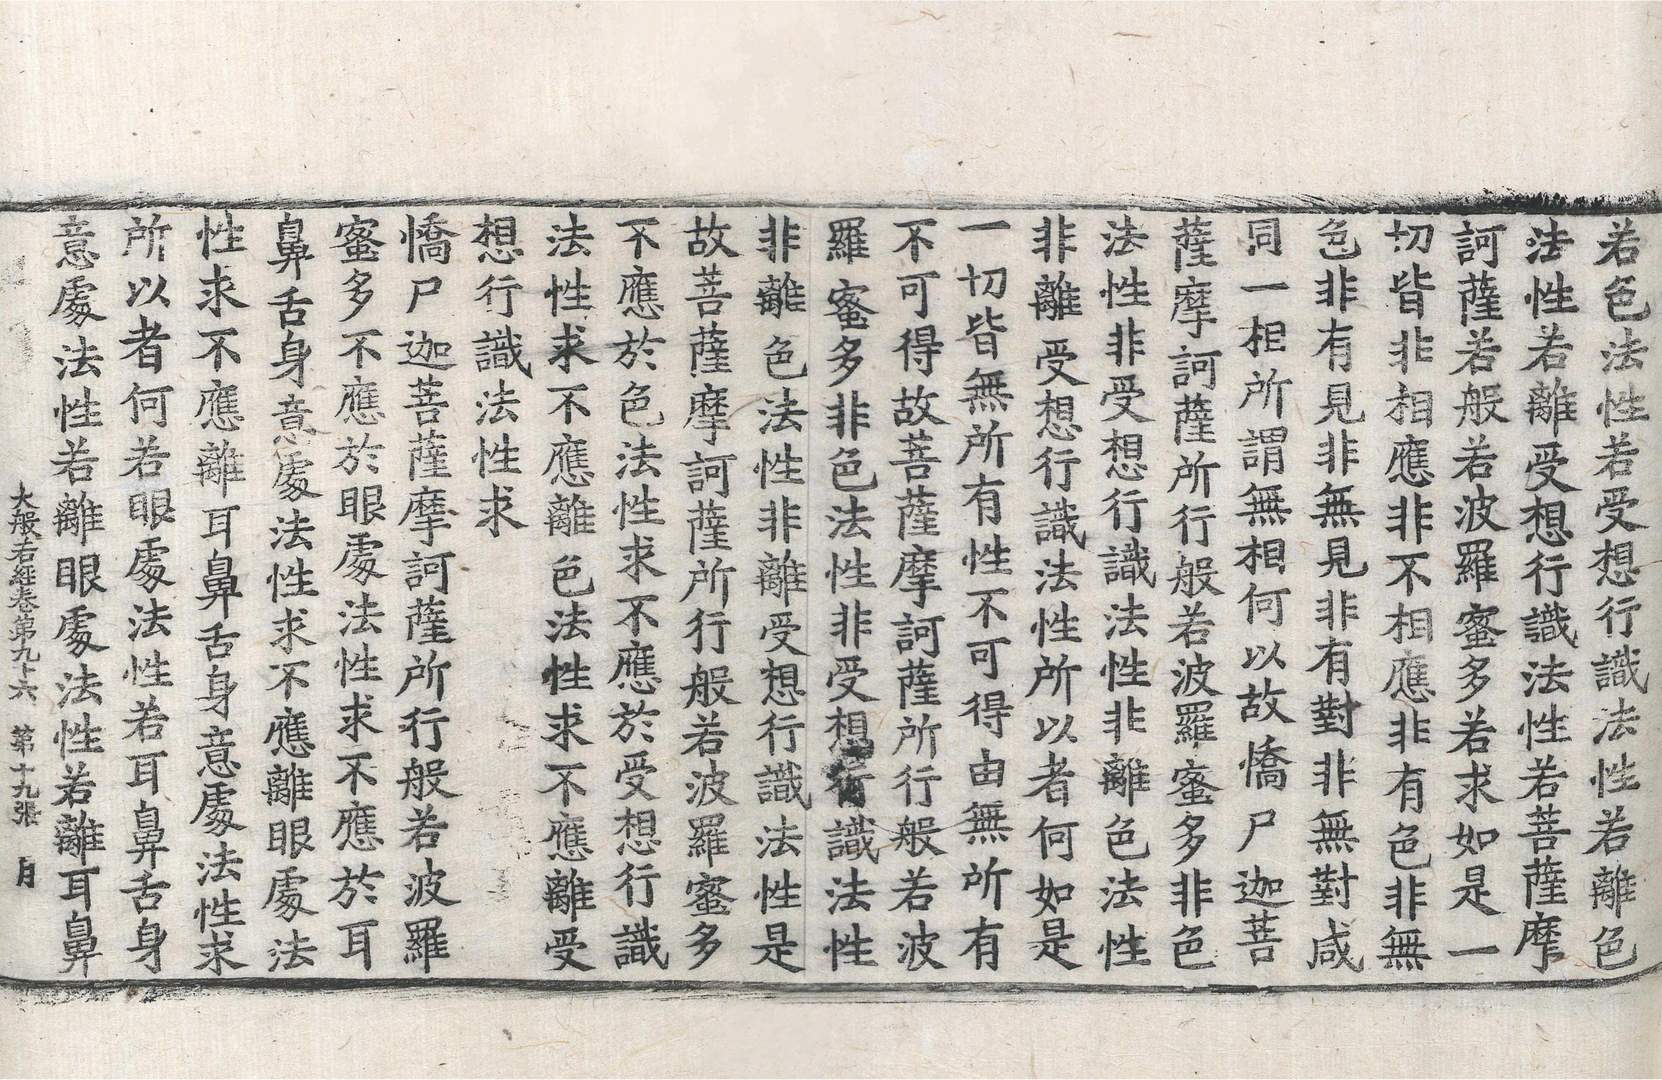 若色法性若受想行識法性若離色
法性若離受想行識法性若菩薩摩
訶薩若般若波羅蜜多若求如是一
切皆非相應非不相應非有色非無
色非有見非無見非有對非無對咸
同一相所謂無相何以故憍尸迦菩
薩摩訶薩所行般若波羅蜜多非色
法性非受想行識法性非離色法性
非離受想行識法性所以者何如是
一切皆無所有性不可得由無所有
不可得故菩薩摩訶薩所行般若波
羅蜜多非色法性非受想行識法性
非離色法性非離受想行識法性是
故菩薩摩訶薩所行般若波羅蜜多
不應於色法性求不應於受想行識
法性求不應離色法性求不應離受
想行識法性求
憍尸迦菩薩摩訶薩所行般若波羅
蜜多不應於眼處法性求不應於耳
鼻舌身意處法性求不應離眼處法
性求不應離耳鼻舌身意處法性求
所以者何若眼處法性若耳鼻舌身
意處法性若離眼處法性若離耳鼻
大般若經卷第九十六 第十九張 月